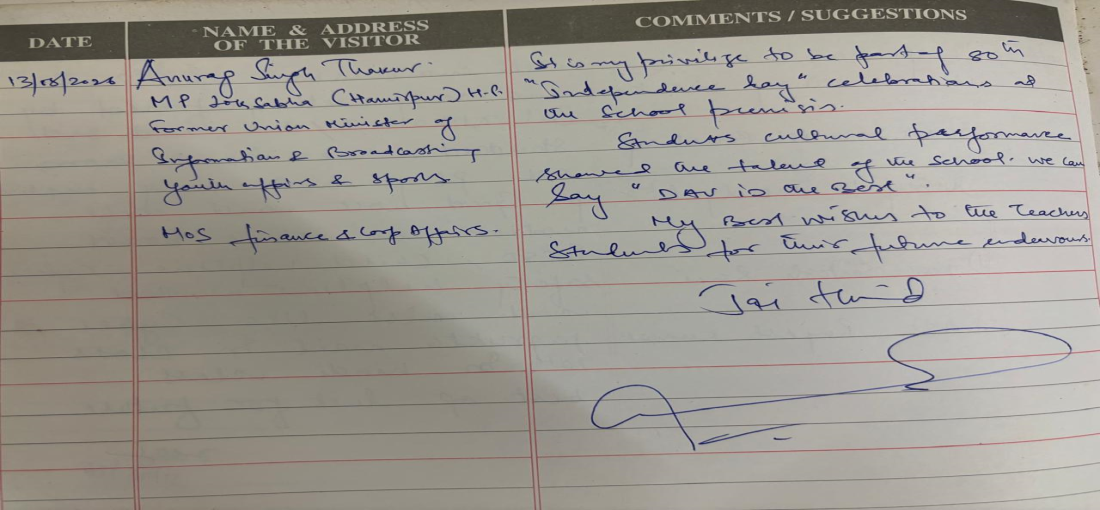 DATE
NAME & ADDRESS
OF THE VISITOR
COMMENTS / SUGGESTIONS
13/08/2026
Anurag Singh Thakur.
MP Lok Sabha (Hamirpur) H.P.
Former Union Minister of
Information & Broadcasting
Youth affairs & sports
MoS finance & Corp Affairs.
It is my privilige to be part of 80th
"Independence Day" celebrations at
the School premisis.
Students cultural performance
showed the talent of the school. we can
Say "DAV is the Best".
My Best wishes to the Teachers
Students for their future endevours.
Jai Hind